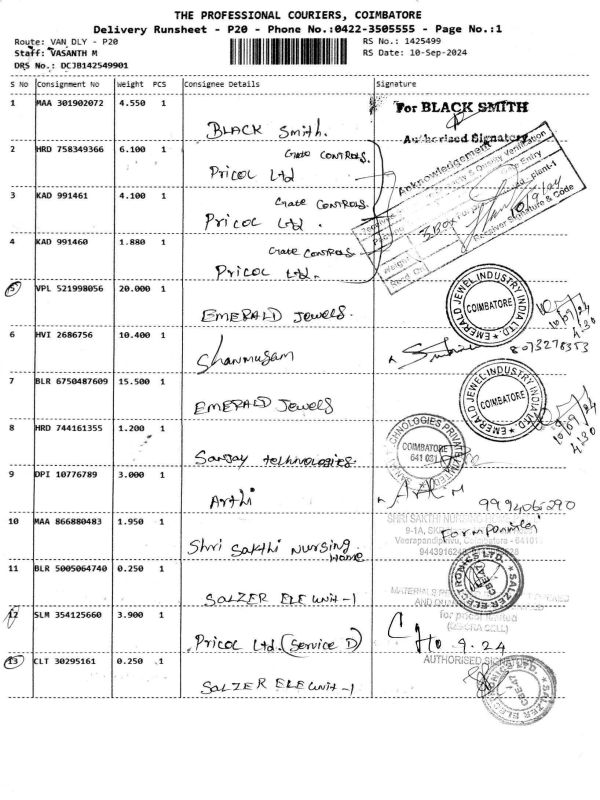 THE PROFESSIONAL COURIERS, COIMBATORE
Delivery Runsheet - P20 - Phone No.:0422-3505555 - Page No.:1
Route: VAN DLY - P20
RS No.: 1425499
Staff: VASANTH M
RS Date: 10-Sep-2024
DRS No.: DCJB142549901
S No Consignment No Weight PCS Consignee Details Signature
1 MAA 301902072 4.550 1
For BLACK SMITH
BLACK Smith.
Authorised Signatory
2 HRD 758349366 6.100 1
Gate CONTROLS.
Pricol Ltd
Acknowledgement
3 KAD 991461 4.100 1
Gate CONTROLS.
Pricol Ltd.
Receiver Signature & Code
10/9/24
4 KAD 991460 1.880 1
Gate CONTROLS
Pricol Ltd.
5 VPL 521998056 20.000 1
EMERALD Jewels.
EMERALD JEWEL INDUSTRY INDIA LTD.
COIMBATORE
10/09/24
4.30
6 HVI 2686756 10.400 1
Shanmugam
8073278353
7 BLR 6750487609 15.500 1
EMERALD Jewels
EMERALD JEWEL INDUSTRY INDIA LTD.
COIMBATORE
10/09/24
4.30
8 HRD 744161355 1.200 1
Sanjay technologies.
COIMBATORE
641 031
9 DPI 10776789 3.000 1
Arthi
10 MAA 866880483 1.950 1
Shri Sakthi Nursing
Home
SHRI SAKTHI NURSING
11 BLR 5005064740 0.250 1
SALZER ELE UNIT-1
SALZER ELECTRONICS LTD.
CBE-47
12 SLM 354125660 3.900 1
Pricol Ltd. (Service D)
for pricol limited
10.9.24
AUTHORISED SIGNATURE
13 CLT 30295161 0.250 1
SALZER ELE UNIT-1
SALZER ELECTRONICS LTD.
CBE-47